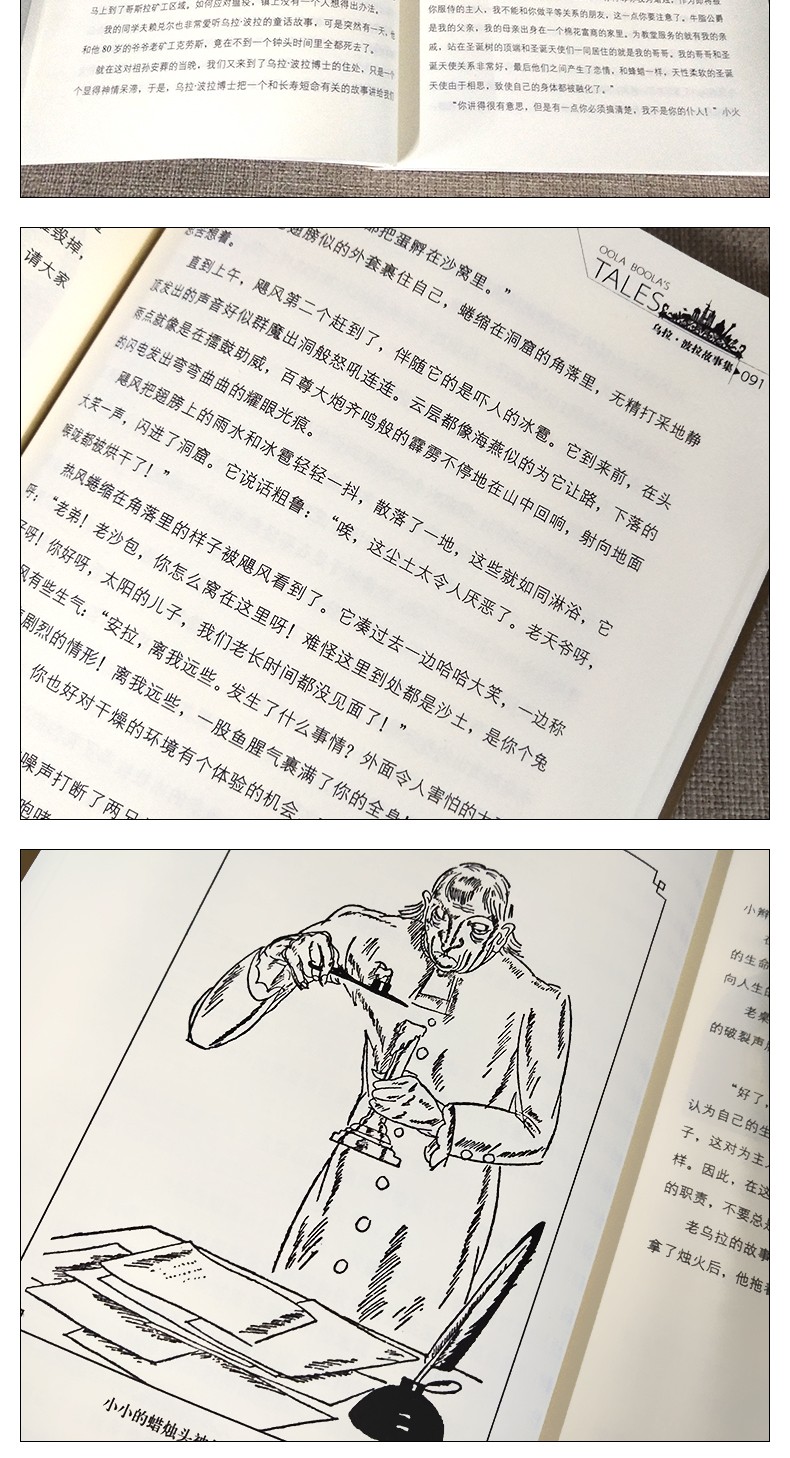 马上到了哥斯拉矿工区域，如何应对瘟疫，镇上没有一个人想得出办法。
我的同学夫赖克尔也非常爱听乌拉·波拉的童话故事，可是突然有一天，他
和他80岁的爷爷老矿工克劳斯，竟在不到一个钟头时间里全都死去了。
就在这对祖孙安葬的当晚，我们又来到了乌拉·波拉博士的住处，只是一个
个显得神情呆滞，于是，乌拉·波拉博士把一个和长寿短命有关的故事讲给我们
你服侍的主人，我不能和你做平等关系的朋友，这一点你要注意了。牛脂公爵
是我的父亲，我的母亲出身在一个棉花富商的家里。为教堂服务的就有我的亲
戚，站在圣诞树的顶端和圣诞天使们一同居住的就是我的哥哥。我的哥哥和圣
诞天使关系非常好，最后他们之间产生了恋情，和蜂蜡一样，天性柔软的圣诞
天使由于相思，致使自己的身体都被融化了。”
“你讲得很有意思，但是有一点你必须搞清楚，我不是你的仆人！”小火
毁掉，
请大家
OOLA BOOLA'S
TALES
乌拉·波拉故事集
091
都把蛋孵在沙窝里。”
翅膀似的外套裹住自己，蜷缩在洞窟的角落里，无精打采地静
思苦想着。
直到上午，飓风第二个赶到了，伴随它的是吓人的冰雹。它到来前，在头
顶发出的声音好似群魔出洞般怒吼连连。云层都像海燕似的为它让路，下落的
雨点就像是在擂鼓助威，百尊大炮齐鸣般的霹雳不停地在山中回响，射向地面
的闪电发出弯弯曲曲的耀眼光痕。
飓风把翅膀上的雨水和冰雹轻轻一抖，散落了一地，这些就如同淋浴，它
大笑一声，闪进了洞窟。它说话粗鲁：“唉，这尘土太令人厌恶了。老天爷呀，
喉咙都被烘干了！”
热风蜷缩在角落里的样子被飓风看到了。它凑过去一边哈哈大笑，一边称
呼：“老弟！老沙包，你怎么窝在这里呀！难怪这里到处都是沙土，是你个兔
子呀！你好呀，太阳的儿子，我们老长时间都没见面了！”
风有些生气：“安拉，离我远些。发生了什么事情？外面令人害怕的
剧烈的情形！离我远些，一股鱼腥气裹满了你的全身！
你也好对干燥的环境有个体验的机会
噪声打断了两兄
咆哮
小小的蜡烛头被
小辫
的生命
向人生
老桌
的破裂声
“好了，
认为自己的生
子，这对为主人
样。因此，在这
的职责，不要总是
老乌拉的故事
拿了烛火后，他拖着